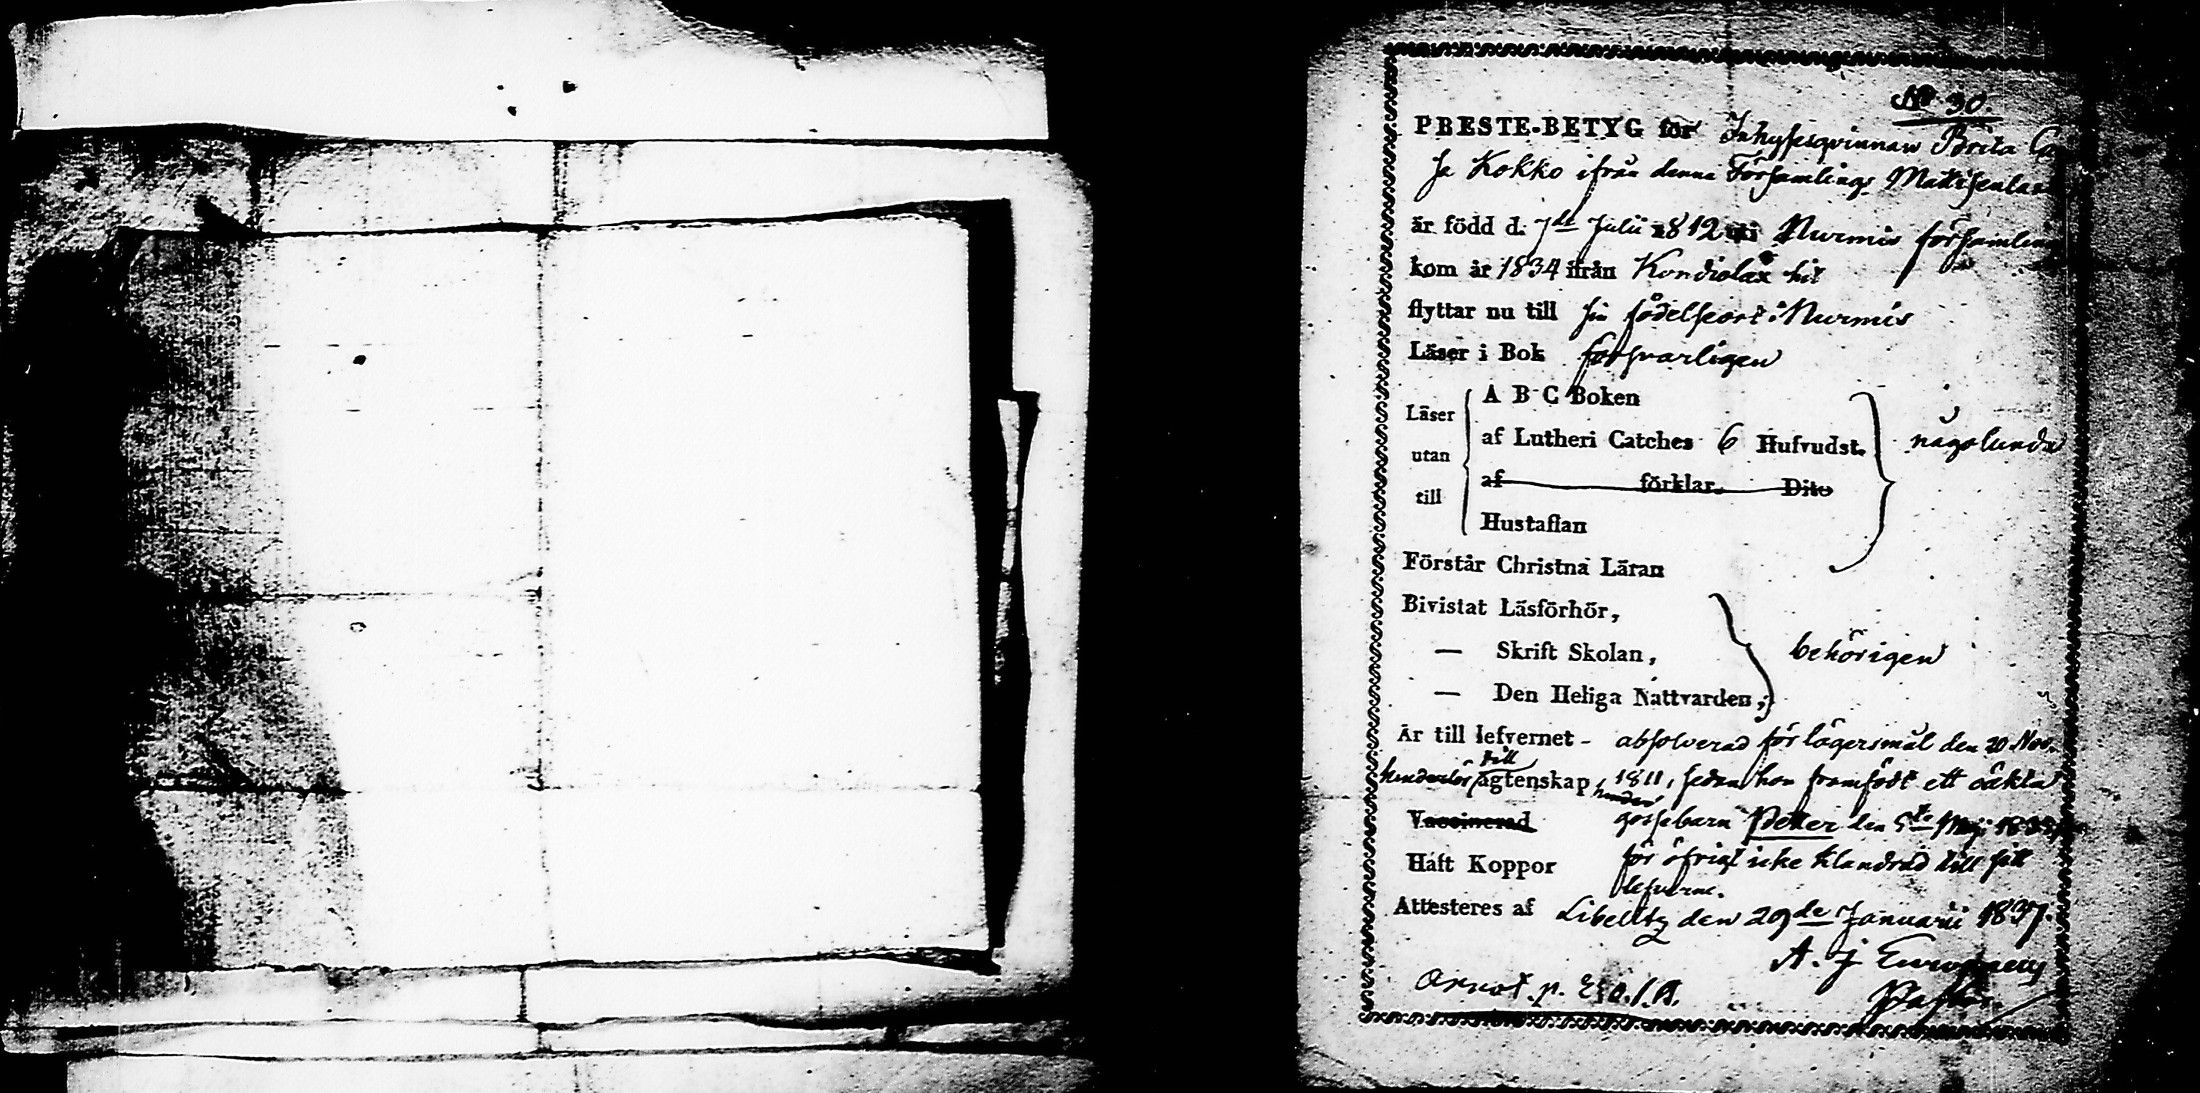 No 30.
PRESTE-BETYG för Inhysesqvinnan Brita Ca
sa Kokko ifrån denna Församlings
är född d. 7de Julii 1812 i Nurmis församling
kom år 1834 ifrån Kondiolax hit
flyttar nu till sin födelseort i Nurmis
Läser i Bok försvarligen
Läser utan till
A B C Boken
af Lutheri Catches 6 Hufvudst. någolunda
af förklar. Dito
Hustaflan
Förstår Christna Läran
Bivistat Läsförhör,
— Skrift Skolan, behörigen
— Den Heliga Nattvarden,
Är till lefvernet - absolverad för lägersmål den 20 Nov.
hinderlös till ägtenskap, sedan hon framfödt ett oäkta
Vaccinerad gossebarn Petter den 5te Maji
Haft Koppor för öfrigt icke klandrad till sitt
lefverne.
Attesteres af Libelitz den 29de Januarii 1837.
A. J.
Pastor.